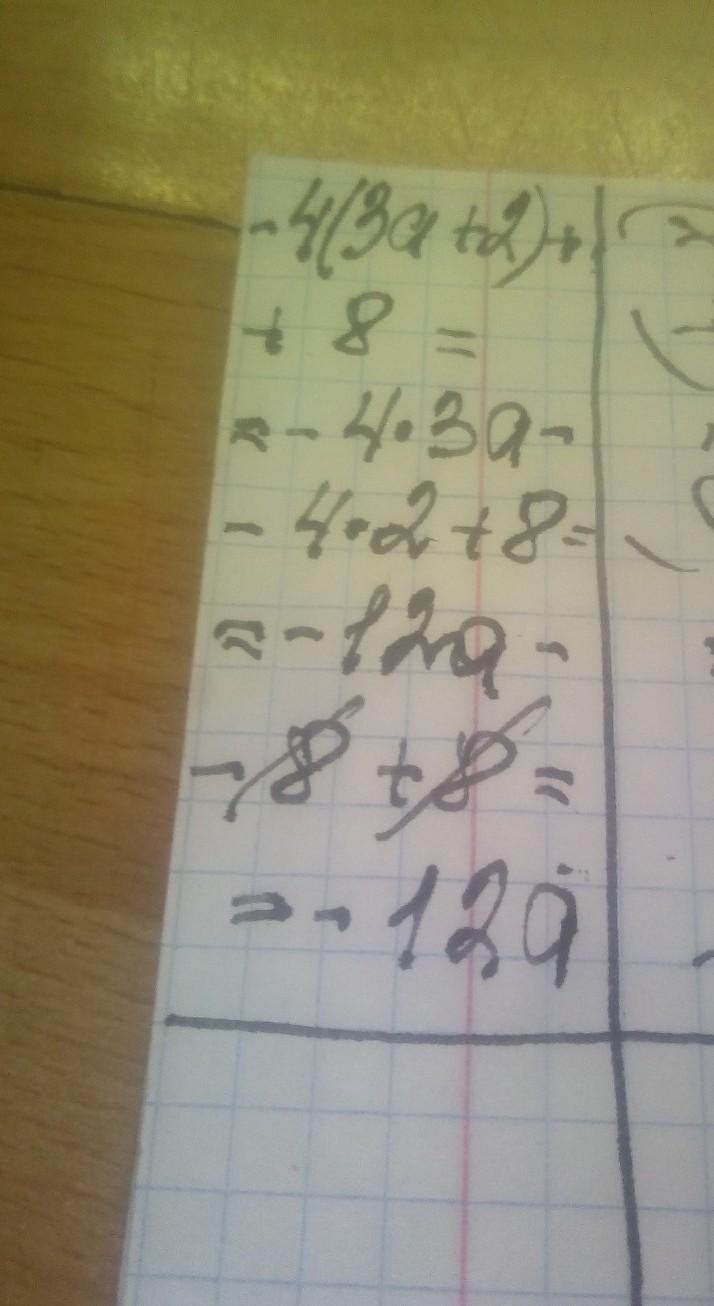 -4(3a+2)+
+ 8 =
= - 4·3a -
- 4·2 + 8 =
= - 12a -
- 8 + 8 =
= - 12a